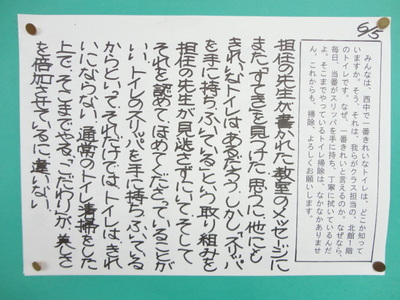 5/5
みんなは、西中で一番きれいなトイレは、どこか知って
いますか。そう、それは、我らがクラス担当の、北館1階
のトイレです。なぜ、一番きれいと言えるのか。なぜなら、
毎日、当番がスリッパを手に持ち、丁寧に拭いているんだ
よ。そこまでやっているトイレ掃除は、なかなかありませ
ん。これからも、掃除、よろしくお願いします。
担任の先生が書かれた教室のメッセージに
また「すてき」を見つけた思う。他にも
きれいなトイレはあるだろう。しかし「スリッパ
を手に持ち、ふいている」という取り組みを
担任の先生が見逃さずにいて、そして
それを認めて、ほめてくださっていることが
いい。トイレのスリッパを手に持ち、ふいている
からといって、それだけではトイレは、きれ
いにならない。通常のトイレ清掃をした
上で、そこまでやる。「こだわり」が、美しさ
を倍加させているに違いない。